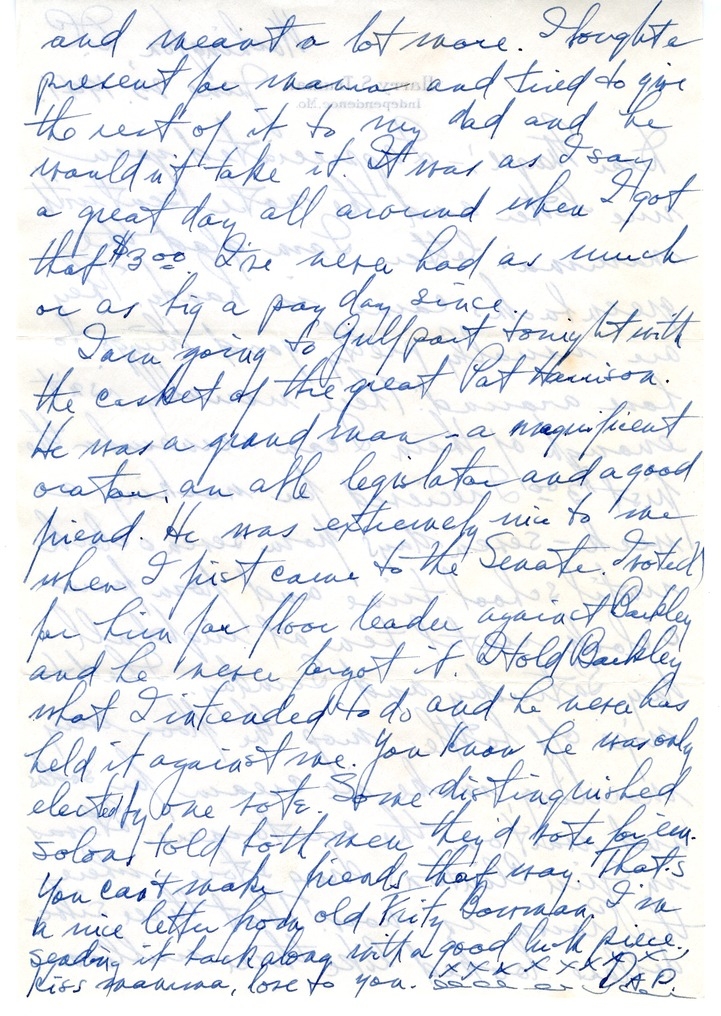 and meant a lot more. I bought a
present for mama and tried to give
the rest of it to my dad and he
wouldn't take it. It was as I say
a great day all around when I got
that $3 00. I've never had as much
or as big a pay day since.
I am going to Gulfport tonight with
the casket of the great Pat Harrison.
He was a grand man - a magnificent
orator, an able legislator and a good
friend. He was extremely nice to me
when I first came to the Senate. I voted
for him for floor leader against Barkley
and he never forgot it. I told Barkley
what I intended to do and he never has
held it against me. You know he was only
elected by one vote. Some distinguished
solons told both men they'd vote for em.
You can't make friends that way. That's
a nice letter from old Fritz Bowman. I'm
sending it back along with a good luck piece.
Kiss mamma, love to you. XXXXXXXX DAD.
Harry S.
Independence, Mo.